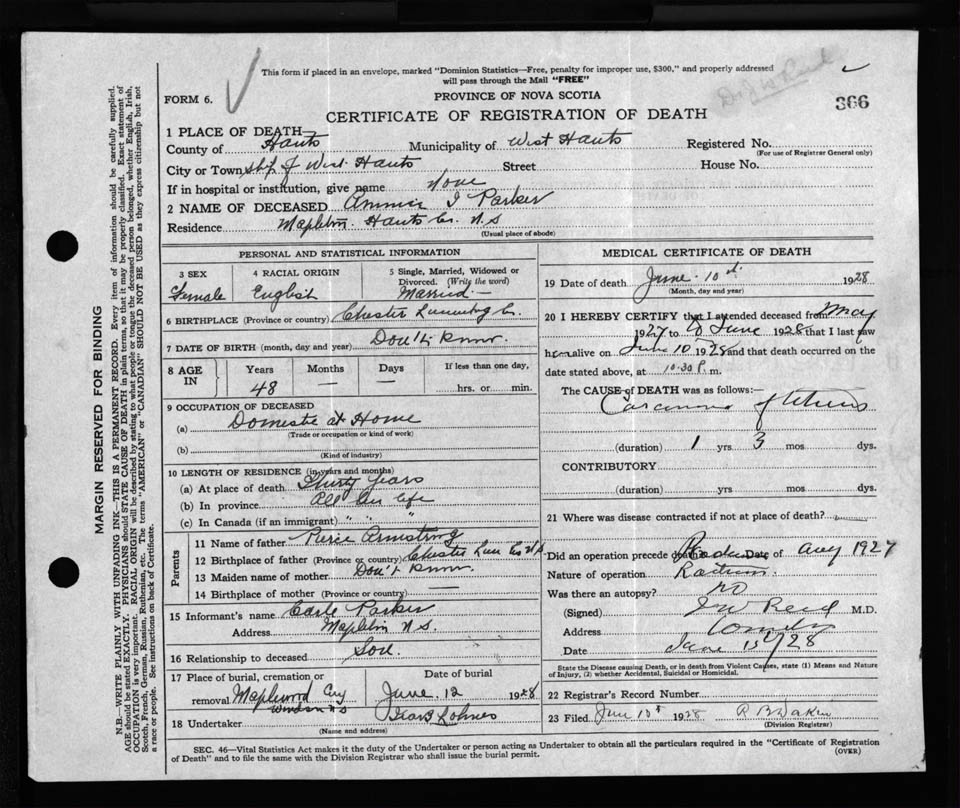 This form if placed in an envelope, marked "Dominion Statistics—Free, penalty for improper use, $300," and properly addressed
will pass through the Mail "FREE"
FORM 6.
PROVINCE OF NOVA SCOTIA
866
CERTIFICATE OF REGISTRATION OF DEATH
1 PLACE OF DEATH—
County of Hants Municipality of West Hants Registered No.
(For use of Registrar General only)
City or Town Ship of West Hants Street House No.
If in hospital or institution, give name None
2 NAME OF DECEASED Annie I Parker
Residence Mapleton Hants Co. N.S
(Usual place of abode)
PERSONAL AND STATISTICAL INFORMATION
3 SEX 4 RACIAL ORIGIN 5 Single, Married, Widowed or
Divorced. (Write the word)
Female English Married
6 BIRTHPLACE (Province or country) Chester Lunenburg Co.
7 DATE OF BIRTH (month, day and year) Don't Know
8 AGE IN Years Months Days If less than one day,
48 — — hrs. or min.
9 OCCUPATION OF DECEASED
(a) Domestic at Home
(Trade or occupation or kind of work)
(b)
(Kind of industry)
10 LENGTH OF RESIDENCE (in years and months)
(a) At place of death Thirty Years
(b) In province All her life
(c) In Canada (if an immigrant) " " "
Parents
11 Name of father Armstrong
12 Birthplace of father (Province or country) Chester Lun Co N.S
13 Maiden name of mother Don't Know
14 Birthplace of mother (Province or country) —
15 Informant's name Earle Parker
Address Mapleton N.S.
16 Relationship to deceased Son
17 Place of burial, cremation or Date of burial
removal Maplewood Windsor N S June 12 1928
18 Undertaker Lohnes
(Name and address)
MEDICAL CERTIFICATE OF DEATH
19 Date of death June 10th 1928
(Month, day and year)
20 I HEREBY CERTIFY that I attended deceased from May
1927 to June 1928 that I last saw
her alive on June 10 1928 and that death occurred on
date stated above, at 10.30 P. m.
The CAUSE of DEATH was as follows:—
Carcinoma of Uterus
(duration) 1 yrs 3 mos dys.
CONTRIBUTORY
(duration) yrs. mos. dys.
21 Where was disease contracted if not at place of death?
Did an operation precede death Radium Date of Aug 1927
Nature of operation Radium
Was there an autopsy? no
(Signed) J W Reid M.D.
Address
Date June 13 / 28
State the Disease causing Death, or in death from Violent Causes, state (1) Means and Nature
of Injury, (2) whether Accidental, Suicidal or Homicidal.
22 Registrar's Record Number
23 Filed June 13th 1928
(Division Registrar)
SEC. 46—Vital Statistics Act makes it the duty of the Undertaker or person acting as Undertaker to obtain all the particulars required in the "Certificate of Registration
of Death" and to file the same with the Division Registrar who shall issue the burial permit.
(OVER)
MARGIN RESERVED FOR BINDING
N.B.—WRITE PLAINLY WITH UNFADING INK—THIS IS A PERMANENT RECORD. Every item of information should be carefully supplied.
AGE should be stated EXACTLY. PHYSICIANS should STATE CAUSE OF DEATH in plain terms, so that it may be properly classified. Exact statement of
OCCUPATION is very important. RACIAL ORIGIN will be described by stating to what people or tongue the deceased person belonged, whether English, Irish,
Scotch, French, German, Russian, Ruthenian, etc. The terms "AMERICAN" or "CANADIAN" SHOULD NOT BE USED as they express citizenship but not
a race or people. See instructions on back of Certificate.